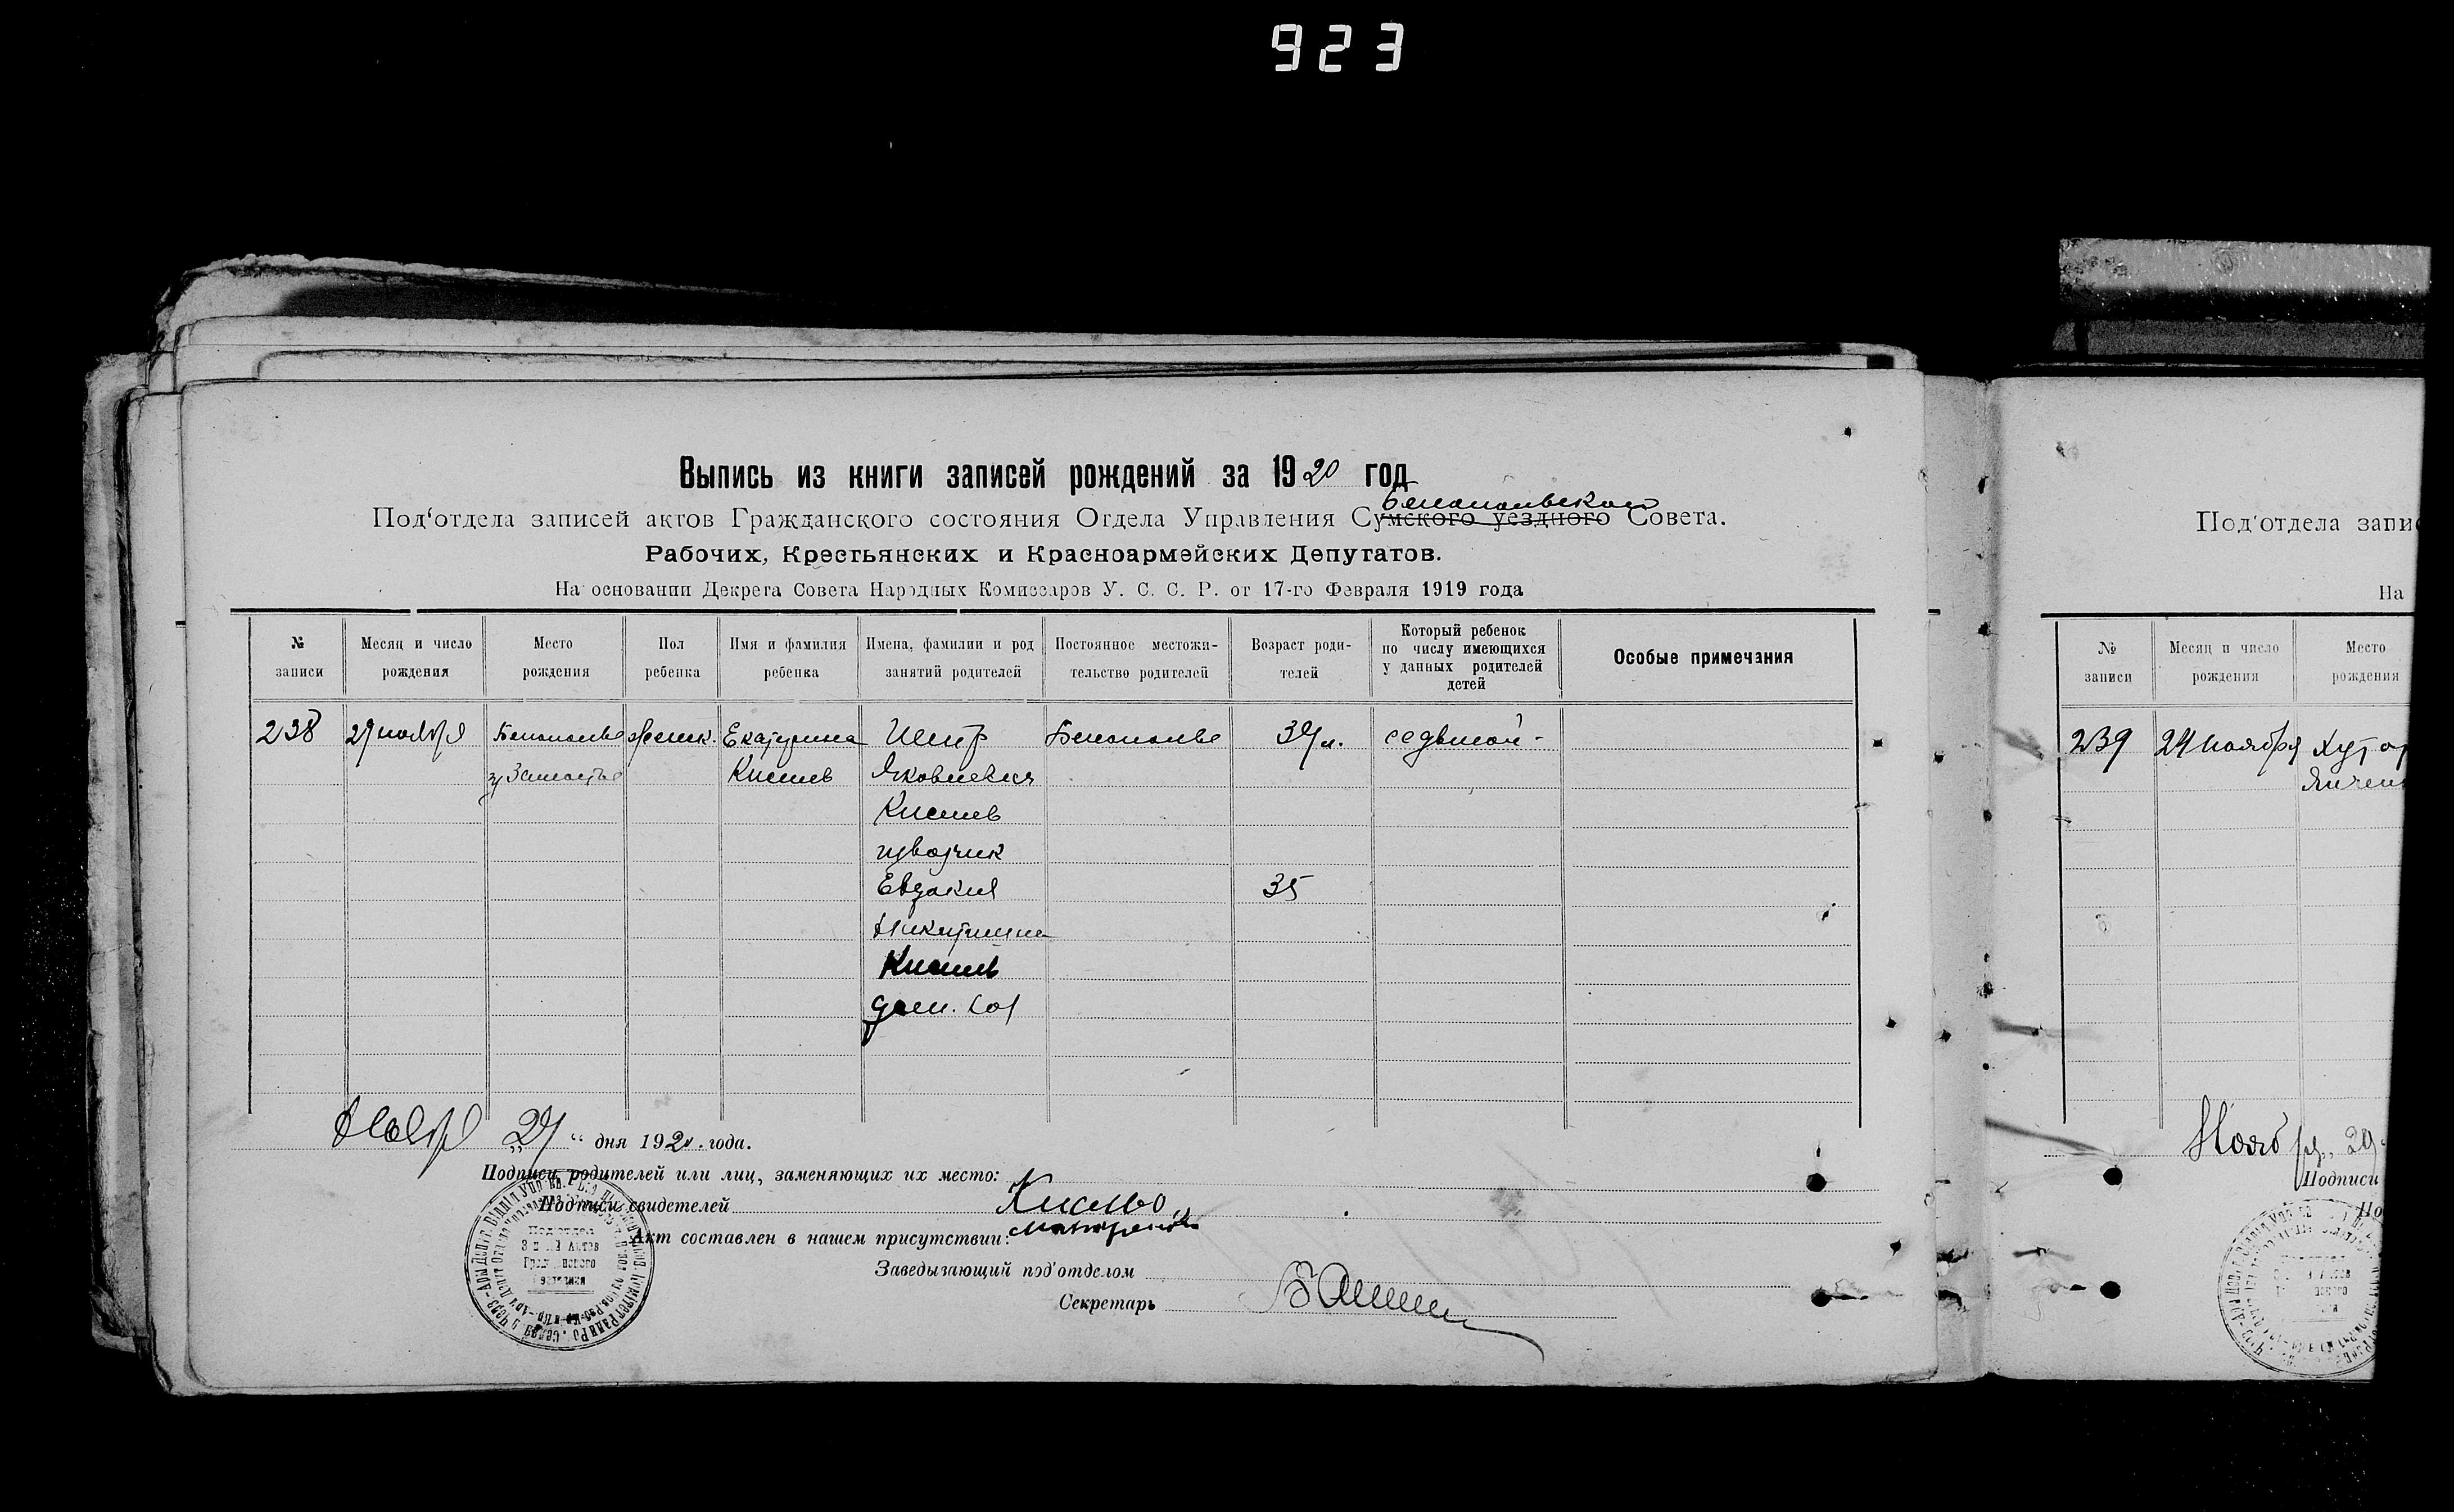 923
Выпись из книги записей рождений за 1920 год
Белопольского
Под‘отдела записей актов Гражданского состояния Отдела Управления Сумского уездного Совета.
Рабочих, Крестьянских и Красноармейских Депутатов.
На основании Декрета Совета Народных Комиссаров У. С. С. Р. от 17-го Февраля 1919 года
№ записи
Месяц и число рождения
Место рождения
Пол ребенка
Имя и фамилия ребенка
Имена, фамилии и род занятий родителей
Постоянное местожительство родителей
Возраст родителей
Который ребенок по числу имеющихся у данных родителей детей
Особые примечания
238 ноября Белополье женск. Екатерина Петр Белополье седьмой -
Яковлевич
извозчик
Евдокия 35
Никитична
дом. хоз
дня 1920 года.
Подписи родителей или лиц, заменяющих их место:
Подписи свидетелей
Акт составлен в нашем присутствии:
Заведывающий под‘отделом
Секретарь
Под‘отдела запи
На
№ записи
Месяц и число рождения
Место рождения
239 24 ноября Хутор
Ноября 29
Подписи
По